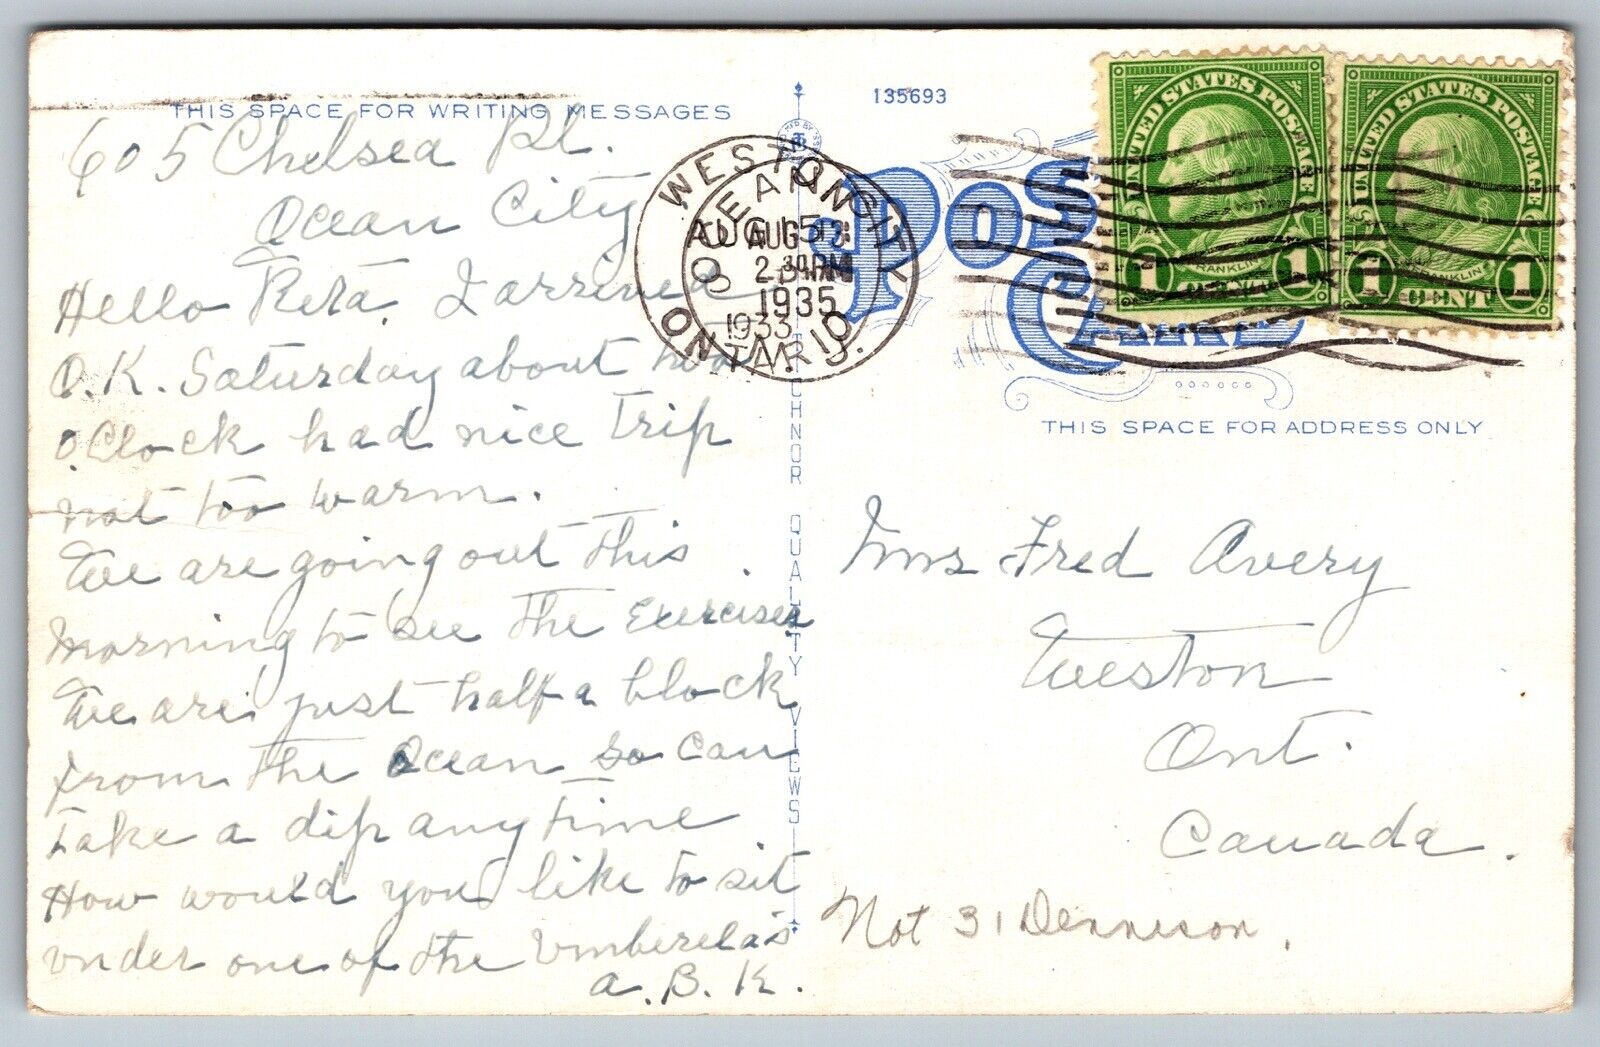 THIS SPACE FOR WRITING MESSAGES
605 Chelsea Pl.
Ocean City
Hello Reta. I arrived
O.K. Saturday about two
O.Clock had nice trip
not too warm.
We are going out this
morning to see the Exercises
We are just half a block
from the Ocean so can
take a dip any time
How would you like to sit
under one of the Umberela's
A.B.K.
TECHNOR QUALITY VIEWS
135693
WESTON
ONTARIO
OCEAN CITY
N.J.
AUG 5
AUG
PM
1935
1933
POST CARD
UNITED STATES POSTAGE
FRANKLIN
1 CENT 1
UNITED STATES POSTAGE
FRANKLIN
1 CENT 1
THIS SPACE FOR ADDRESS ONLY
Mrs Fred Avery
Weston
Ont.
Canada.
Not 31 Dennison.